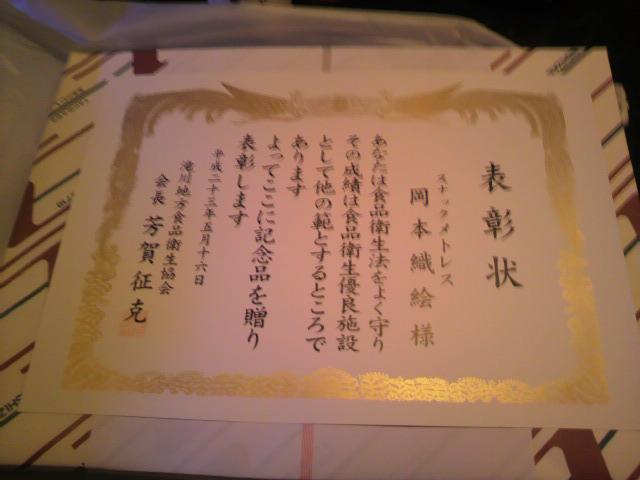 表彰状
スナックメトレス
岡本織絵様
あなたは食品衛生法をよく守り
その成績は食品衛生優良施設
として他の範とするところで
あります
よってここに記念品を贈り
表彰します
平成二十三年五月十六日
滝川地方食品衛生協会
会長 芳賀征克